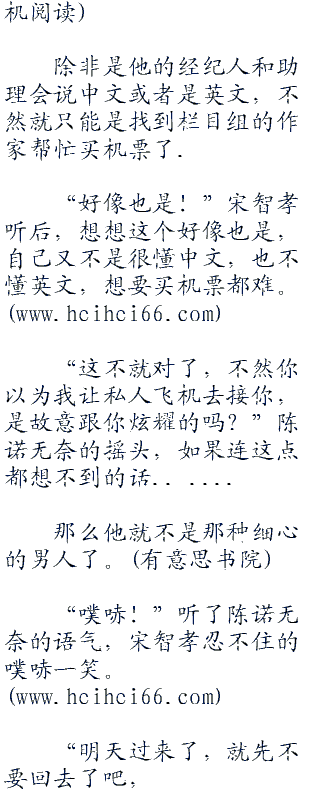 机阅读)
除非是他的经纪人和助
理会说中文或者是英文，不
然就只能是找到栏目组的作
家帮忙买机票了.
“好像也是！”宋智孝
听后，想想这个好像也是，
自己又不是很懂中文，也不
懂英文，想要买机票都难。
(www.hcihci66.com)
“这不就对了，不然你
以为我让私人飞机去接你，
是故意跟你炫耀的吗？”陈
诺无奈的摇头，如果连这点
都想不到的话.. .....
那么他就不是那种细心
的男人了。(有意思书院)
“噗哧！”听了陈诺无
奈的语气，宋智孝忍不住的
噗哧一笑。
(www.hcihci66.com)
“明天过来了，就先不
要回去了吧，